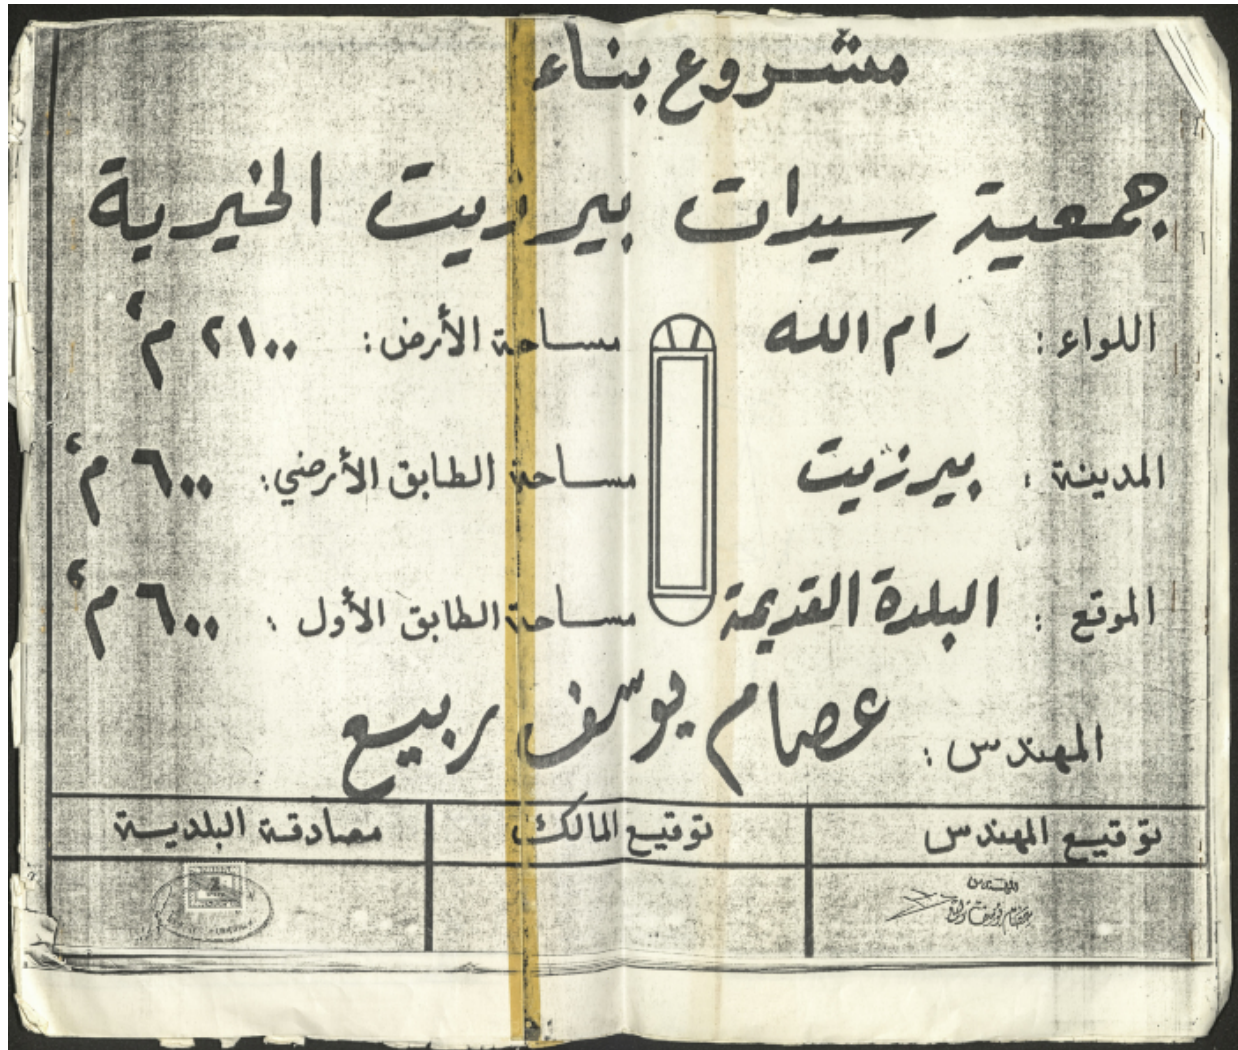 مشروع بناء
جمعية سيدات بيرزيت الخيرية
اللواء : رام الله مساحة الأرض : ٢١٠٠ م٢
المدينة : بيرزيت مساحة الطابق الأرضي : ٦٠٠ م٢
الموقع : البلدة القديمة مساحة الطابق الأول : ٦٠٠ م٢
المهندس : عصام يوسف ربيع
توقيع المهندس توقيع المالك مصادقة البلدية
المهندس
عصام يوسف ربيع